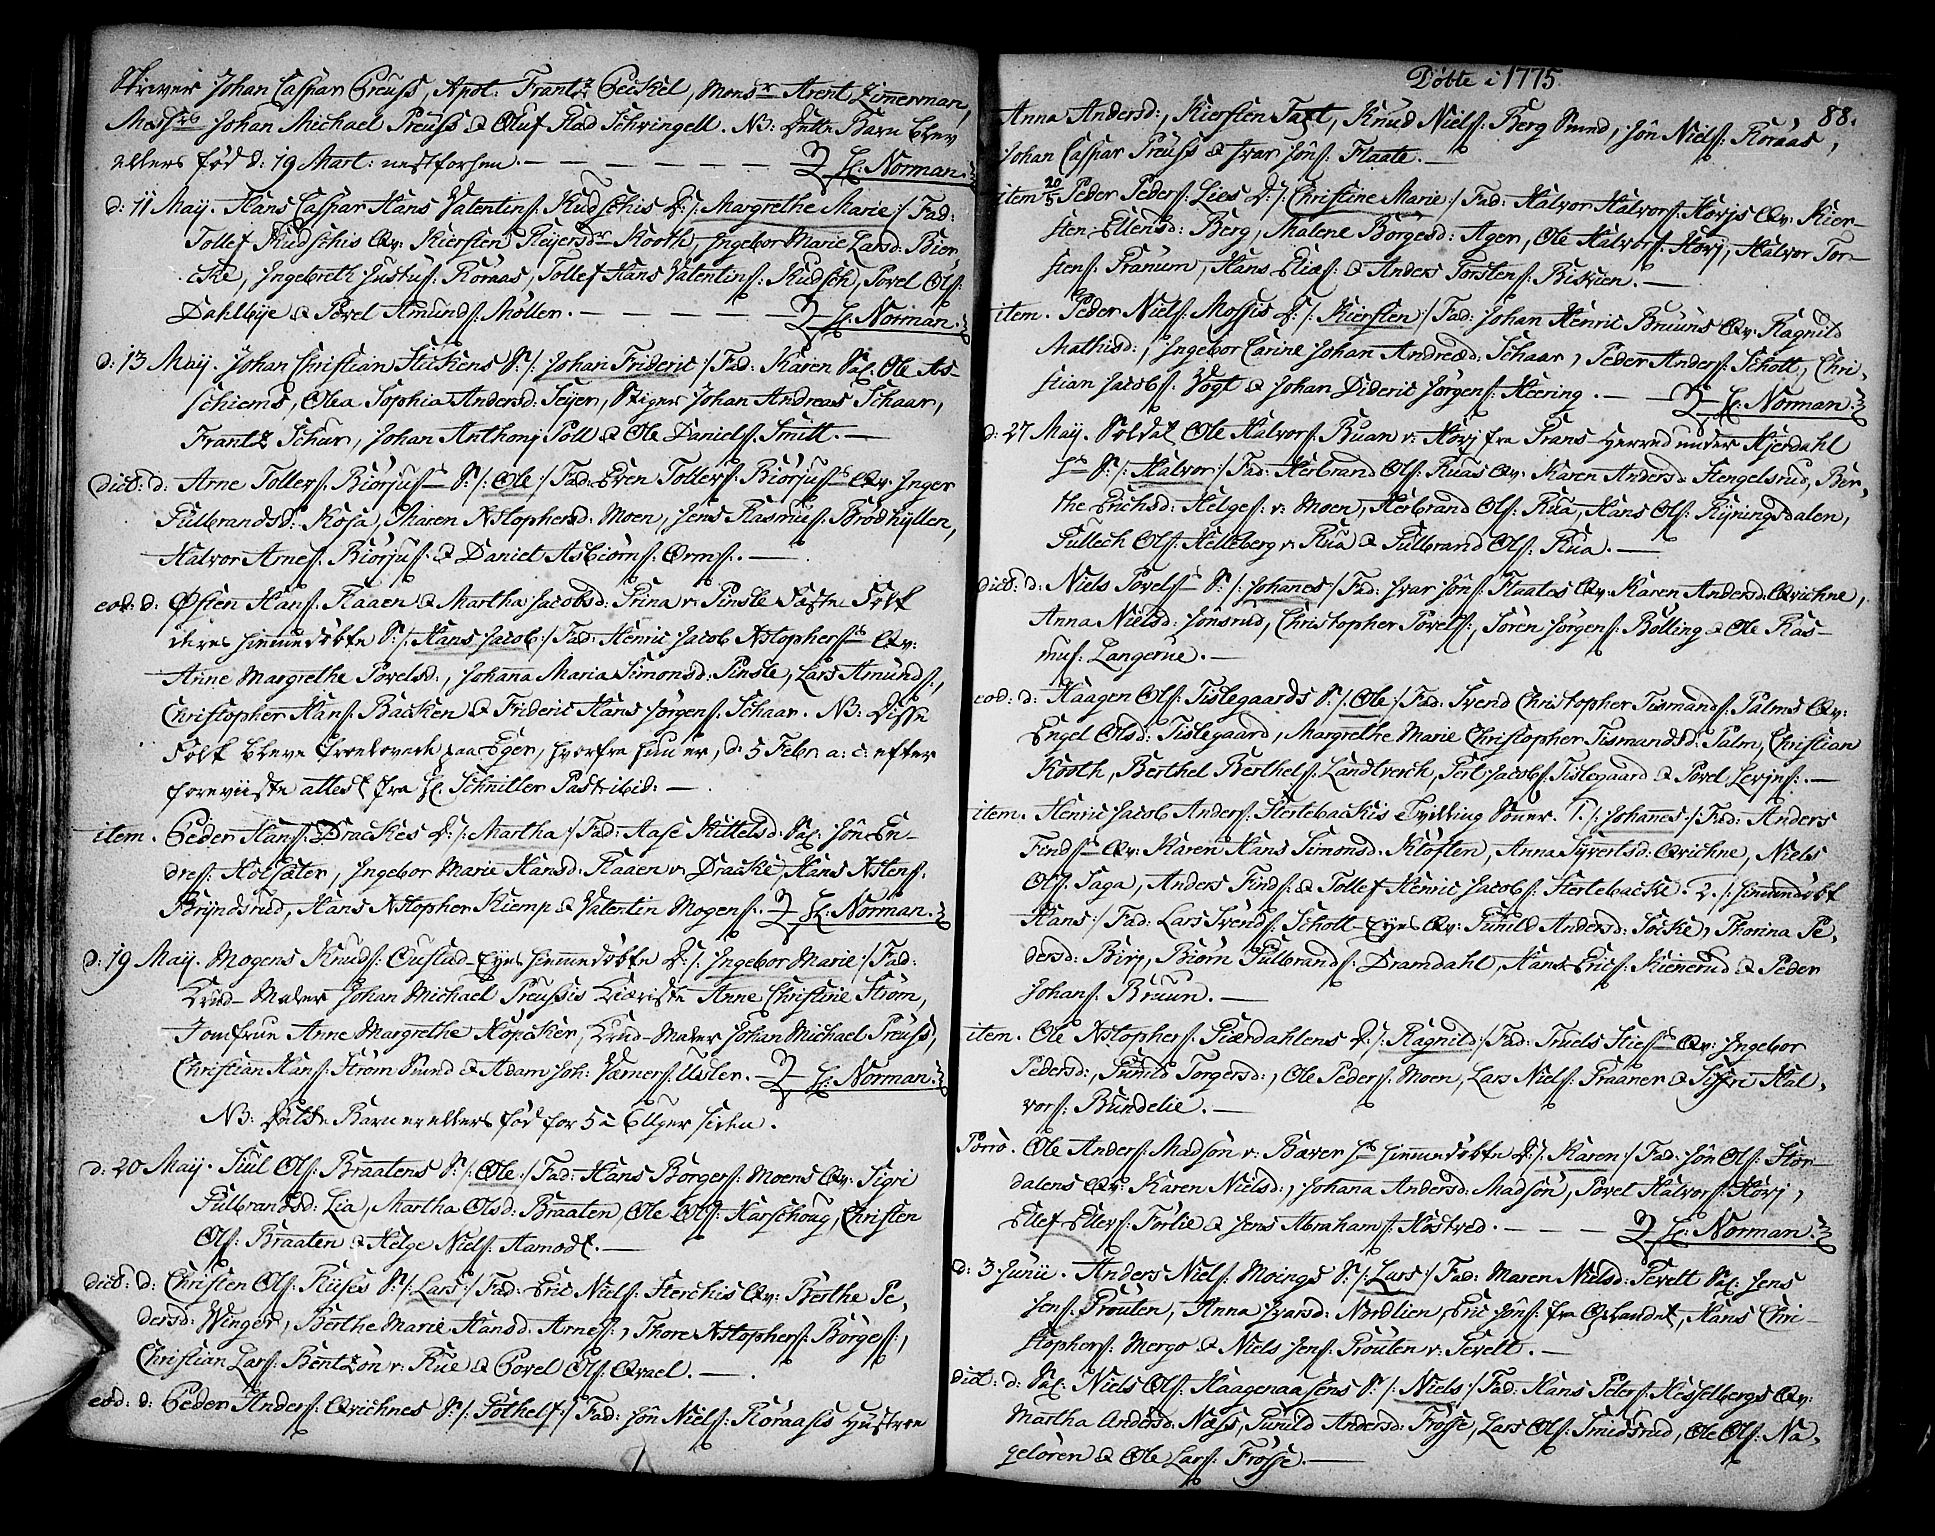 Skriver Johan Caspar Preuss, Apot: Frantz Geickel, Monsr Arent Zimerman,
Messrs Johan Michael Preuss & Oluf Rad Schringell. NB: Dette Barn blev
ellers fød d: 19 Mart: nestforhen. — Hr. Norman.
d: 11 May. Hans Caspar Hans Valentins: Kudschis D:/: Margrethe Marie :/ Fad:
Tollef Kudschis Qv: Kiersten Reyersdr Kooth, Ingebor Marie Larsd: Bier-
cke, Ingebreth Justus: Roraas, Tollef Hans Valentins: Kudsch, Povel Ols:
Dahlbye & Povel Amunds: Møller. — Hr. Norman.
d: 13 May. Johan Christian Stickens S:/: Johan Frideric :/ Fad: Karen Sal. Ole As-
schiems, Olea Sophia Andersd: Seyer, Stiger Johan Andreas Schaar,
Frantz Schur, Johan Anthonj Poll & Ole Daniels: Smitt. —
dict: d: Arne Tollefs: Biørjus S:/: Ole :/ Fad: Even Tollefs: Biørjus Qv: Inger
Gulbrandsd: Kosa, Maren Xstophersd: Moen, Jens Rasmus: Brødhyllen,
Halvor Arnes: Biørjus: & Daniel Asbiørns: Ørns: —
eod: d: Østen Hans: Raaen & Martha Jacobsd: Trina v: Pinsle Faste Folk
deres hiemmedøbte S:/: Hans Jacob :/ Fad: Henric Jacob Xstophers Qv:
Anne Margrethe Povelsd:, Johana Maria Simonsd: Pinsle, Lars Amunds:,
Christopher Hans: Backen & Frideric Hans Jørgens: Schaar. NB: Disse
Folk bleve troelovede paa Eger, hvorfra hun er, d: 5 Febr. a: c: efter
foreviiste attest fra Hr. Schnitler Pastr: ibid: —
item. Peder Hans: Drackes D:/: Martha :/ Fad: Aase Kittelsd: Sal. Jôn En-
dres: Holsæter, Ingebor Marie Hansd: Raaen v: Dracke, Hans Xstens:
Bryndsrud, Hans Xstopher Kiemp & Valentin Mogens. Hr. Norman.
d: 19 May. Mogens Knuds: Cuslud-Eyes hiemmedøbte D:/: Ingebor Marie :/ Fad:
Kund-Maler Johan Michael Preussis Kiæriste Anne Christine Strøm,
Jomfrue Anne Margrethe Höpcker, Kund-Maler Johan Michael Preuss,
Christian Hans: Strøm Smed & Adam Joh: Værners: Usler. — Hr. Norman.
NB: Dette Barn er ellers fød for 5 á 6 Uger siden.
d: 20 May. Juul Ols: Braatens S:/: Ole :/ Fad: Hans Børgers: Moens Qv: Sigri
Gulbrandsd: Lia, Martha Olsd: Braaten, Ole Ols: Karschoug, Christen
Ols: Braaten & Helge Niels: Aamodt. —
dict: d: Christen Ols: Ruses S:/: Lars :/ Fad: Eric Niels: Sterchis Qv: Berthe Pe-
dersd: Winger, Berthe Marie Hansd: Arnes:, Thore Xstophers: Børges:,
Christian Lars: Bentzôn v: Rue & Povel Ols: Qvael. —
eod: d: Peder Anders: Qvichnes S:/: Gothelf :/ Fad: Jôn Niels: Roraasis Hustrue
Døbte i 1775.
88.
Anna Andersd:, Kiersten Faxt, Knud Niels: Berg Smed, Jôn Niels: Roraas,
Johan Caspar Preuss & Ivar Jôns: Flaate. —
item 20/5 Peder Peders: Lies D:/: Christine Marie :/ Fad: Halvor Halvors: Hovjs Qv: Kier-
sten Ellensd: Berg, Malene Børgesd: Ager, Ole Halvors: Hovj, Halvor Tor-
stens: Pranum, Hans Elias: & Anders Torstens: Biskien. —
item. Peder Niels: Mossis D:/: Kiersten :/ Fad: Johan Henric Bruuns Qv: Ragnild
Mathisd:, Ingebor Carine Johan Andreæd: Schaar, Peder Anders: Schott, Chri-
stian Jacobs: Vogt & Johan Dideric Jørgens: Heering. — Hr. Norman.
d: 27 May. Soldat Ole Halvors: Buan v: Hovj fra Trans-Herred under Hjerdahl
S:/: Halvor :/ Fad: Herbrand Ols: Ruas Qv: Karen Andersd: Hengelsrud, Ber-
the Erichsd: Helges: v: Moen, Herbrand Ols: Rua, Hans Ols: Ryningsdalen,
Gullech Ols: Helleberg v: Rua & Gulbrand Ols: Rua. —
dict: d: Niels Povels S:/: Johanes :/ Fad: Ivar Jôns: Flaates Qv: Karen Andersd: Qvichne,
Anna Nielsd: Jonsrud, Christopher Povels:, Søren Jørgens: Bølling & Ole Ras-
mus: Langerne. —
eod: d: Haagen Ols: Tislegaards S:/: Ole :/ Fad: Svend Christopher Tismands: Palms Qv:
Engel Olsd: Tislegaard, Margrethe Marie Christopher Tismandsd: Palm, Christian
Kooth, Berthel Berthels: Landtverch, Perl Jacobs: Tislegaard & Povel Levjns: —
item. Henric Jacob Anders: Stertebackis Tvilling Sønner. 1./: Johanes :/ Fad: Anders
Finds Qv: Karen Hans Simonsd: Kløften, Anna Syvertsd: Qvichne, Niels
Ols: Saga, Anders Finds: & Tollef Henric Jacobs: Stertebacke. 2./: hiemmedøbt
Hans :/ Fad: Lars Svends: Schott-Eyes Qv: Gunild Andersd: Socke, Thorina Pe-
dersd: Birj, Biørn Gulbrands: Dramdahl, Hans Erics: Kienerud & Peder
Johans: Bruun. —
item. Ole Xstophers: Giærdahlens D:/: Ragnild :/ Fad: Truels Sties Qv: Ingebor
Pedersd:, Gunild Torgersd:, Ole Peders: Moen, Lars Niels: Praaner & Siffri Hal-
vors: Bundelie. —
Porro. Ole Anders: Madsôn v: Baver hs hiemmedøbte D:/: Karen :/ Fad: Jôn Ols: Stor-
dalens Qv: Karen Nielsd:, Johana Andersd: Madsôn, Povel Halvors: Hovj,
Ellef Ellefs: Forlie & Jens Abrahams: Hostved. — Hr. Norman.
d: 3 Junii. Anders Niels: Moings S:/: Lars :/ Fad: Maren Nielsd: Tevelt Sal. Jens
Jens: Prouten, Anna Ivarsd: Nordlien, Eric Jôns: fra Oplandet, Hans Chri-
stophers: Mergo & Niels Jens: Prouten v: Tevelt. —
dict: d: Sal. Niels Ols: Haagenaasens S:/: Niels :/ Fad: Hans Peters: Hesselbergs Qv:
Martha Andersd: Næss, Gunild Andersd: Frosse, Lars Ols: Smidsrud, Ole Ols: Na-
geløren & Ole Lars: Frosse. —